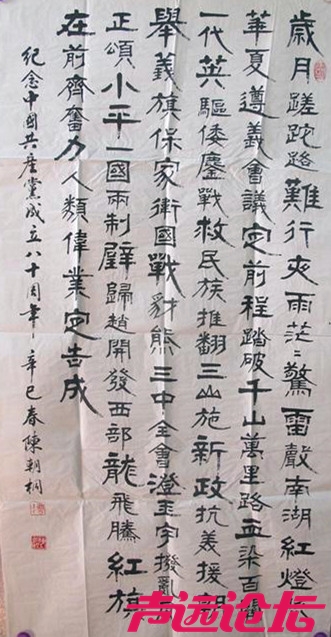 歲月蹉跎路難行夾雨茫〻驚雷聲南湖紅燈照
華夏遵義會議定前程踏破千山萬里路血染百戰
一代英驅倭鏖戰救民族推翻三山施新政抗美援朝
舉義旗保家衛國戰豺熊三中全會澄玉宇撥亂反
正頌小平一國兩制璧歸趙開發西部龍飛騰紅旗
在前齊奮力人類偉業定告成
紀念中國共產黨成立八十周年辛巳春陳朝桐
声远论坛